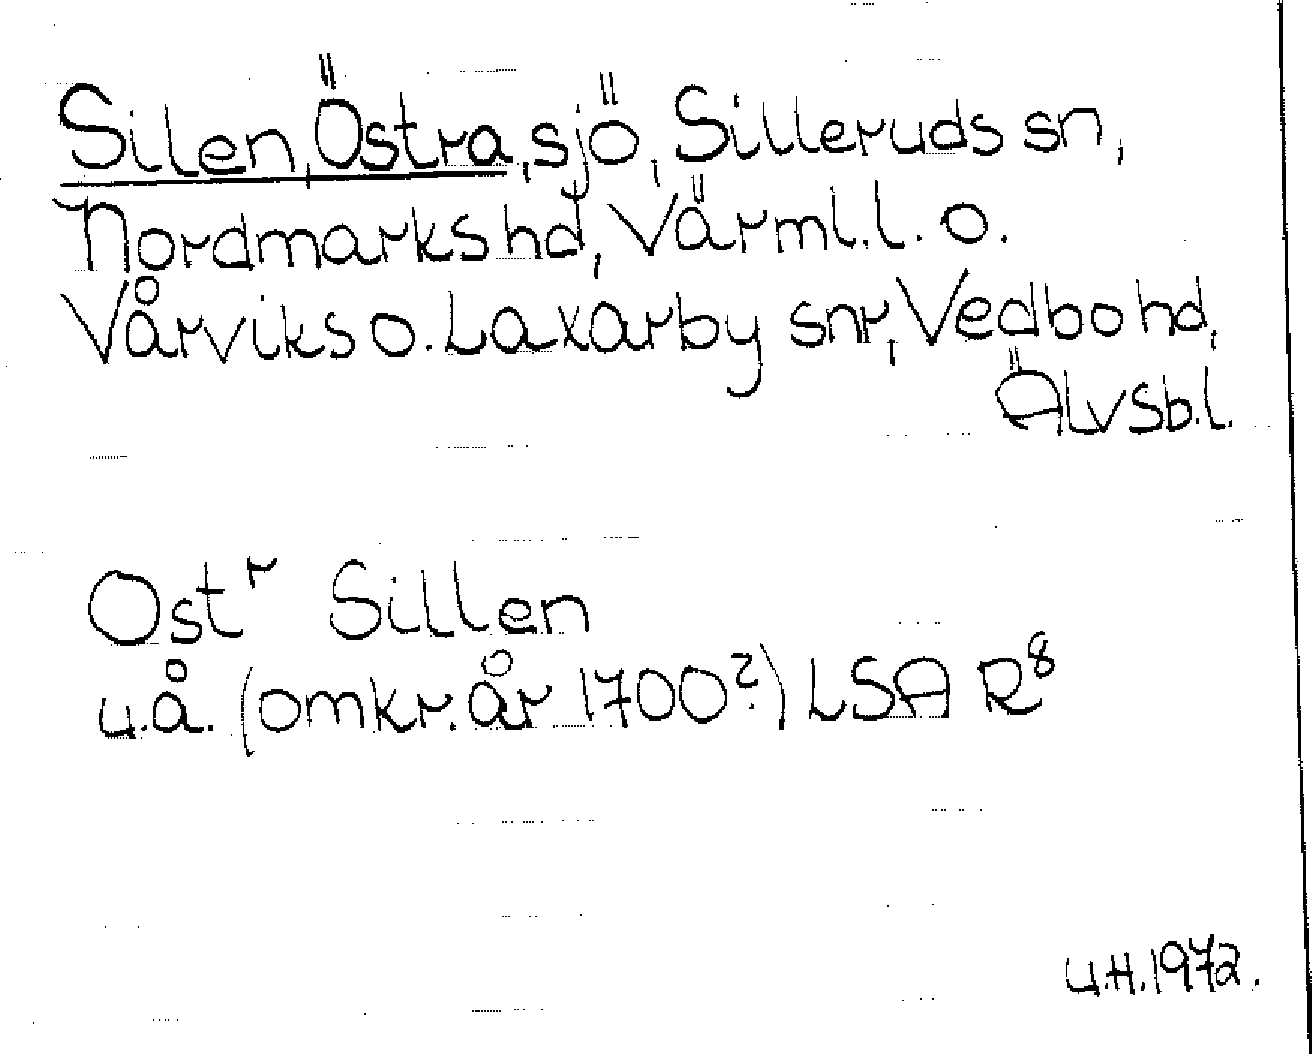 Silen, Östra, sjö, Silleruds sn,
Nordmarks hd, Värml.l. o.
Vårviks o. Laxarby snr, Vedbo hd,
Älvsb.l.
Ostr Sillen
u.å. (omkr. år 1700?) LSA R8
U.H. 1972.